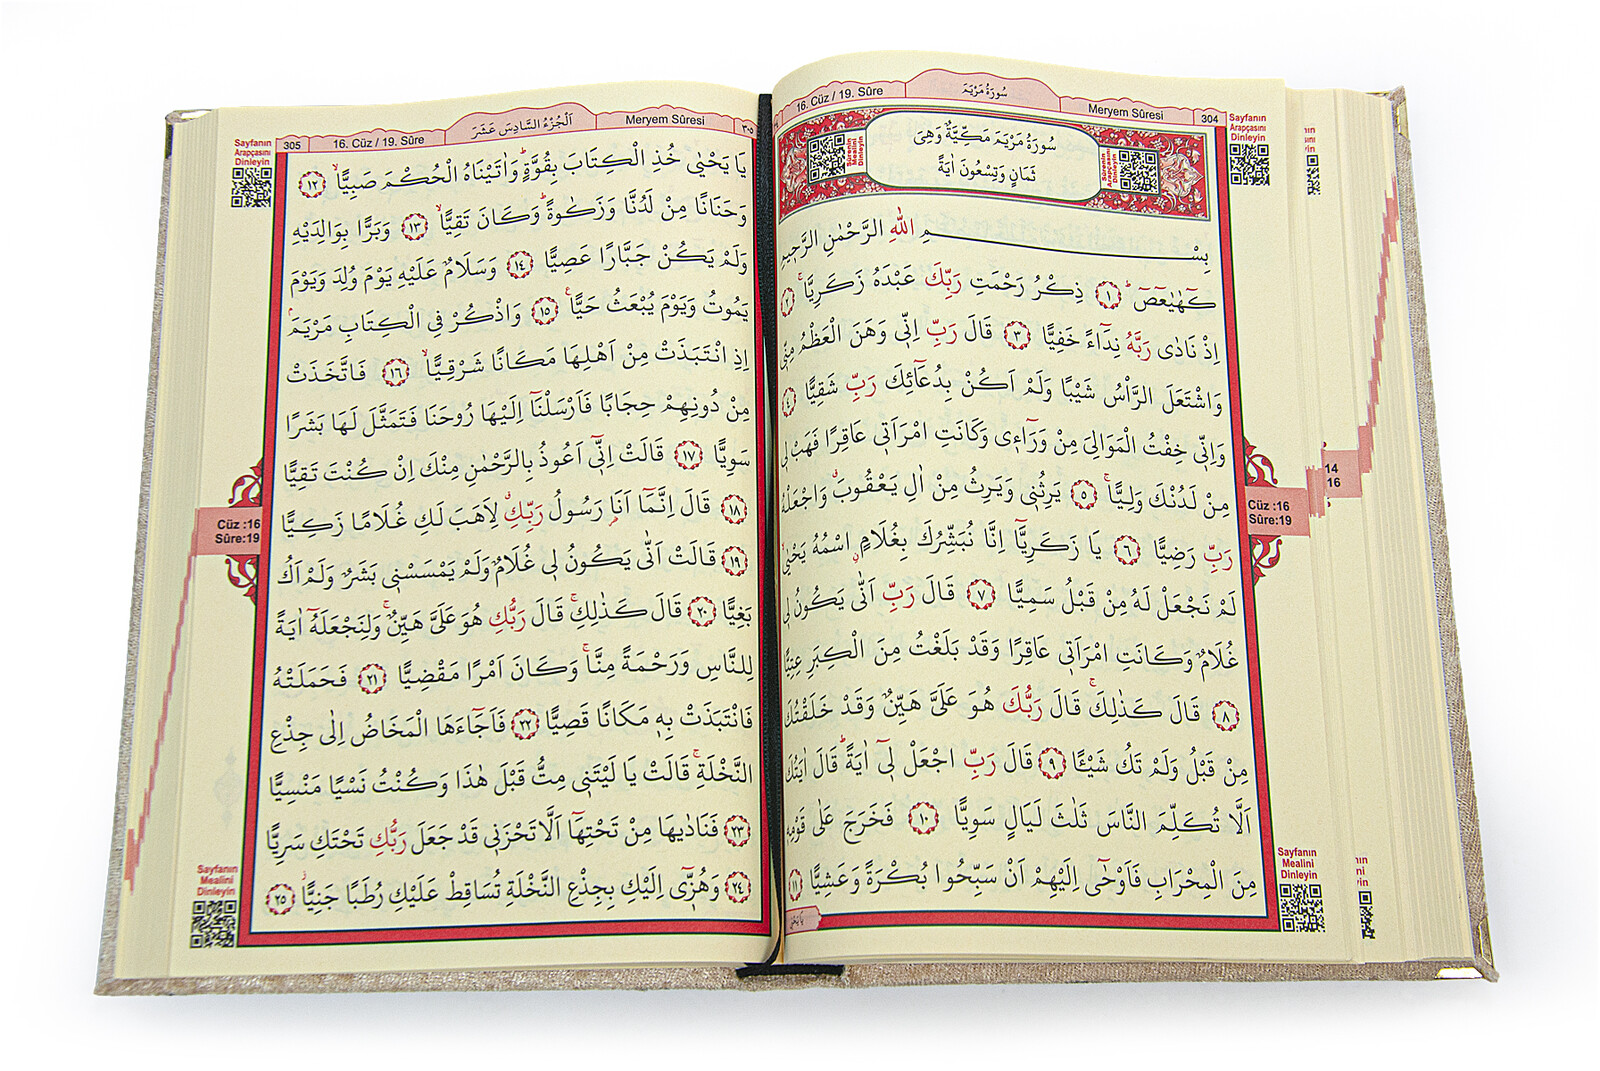 16. Cüz / 19. Sûre
سُورَةُ مَرْيَمَ
Meryem Sûresi
304
سُورَةُ مَرْيَمَ مَكِّيَّةٌ وَهِيَ
ثَمَانٍ وَتِسْعُونَ اٰيَةً
Sûrenin Mealini Dinleyin
Sûrenin Arapçasını Dinleyin
Sayfanın
Arapçasını
Dinleyin
بِسْمِ اللّٰهِ الرَّحْمٰنِ الرَّحٖيمِ
كٓهٰيٰعٓصٓ ۚ ﴿١﴾ ذِكْرُ رَحْمَتِ رَبِّكَ عَبْدَهُ زَكَرِيَّا ۚ ﴿٢﴾
اِذْ نَادٰى رَبَّهُ نِدَٓاءً خَفِيًّا ﴿٣﴾ قَالَ رَبِّ اِنّٖى وَهَنَ الْعَظْمُ مِنّٖى
وَاشْتَعَلَ الرَّأْسُ شَيْبًا وَلَمْ اَكُنْ بِدُعَٓائِكَ رَبِّ شَقِيًّا ﴿٤﴾
وَاِنّٖى خِفْتُ الْمَوَالِىَ مِنْ وَرَٓاءٖى وَكَانَتِ امْرَاَتٖى عَاقِرًا فَهَبْ لٖى
مِنْ لَدُنْكَ وَلِيًّا ۙ ﴿٥﴾ يَرِثُنٖى وَيَرِثُ مِنْ اٰلِ يَعْقُوبَ وَاجْعَلْهُ
رَبِّ رَضِيًّا ﴿٦﴾ يَا زَكَرِيَّٓا اِنَّا نُبَشِّرُكَ بِغُلَامٍ اسْمُهُ يَحْيٰى
لَمْ نَجْعَلْ لَهُ مِنْ قَبْلُ سَمِيًّا ﴿٧﴾ قَالَ رَبِّ اَنّٰى يَكُونُ لٖى
غُلَامٌ وَكَانَتِ امْرَاَتٖى عَاقِرًا وَقَدْ بَلَغْتُ مِنَ الْكِبَرِ عِتِيًّا
﴿٨﴾ قَالَ كَذٰلِكَ ۚ قَالَ رَبُّكَ هُوَ عَلَىَّ هَيِّنٌ وَقَدْ خَلَقْتُكَ
مِنْ قَبْلُ وَلَمْ تَكُ شَيْئًا ﴿٩﴾ قَالَ رَبِّ اجْعَلْ لٖٓى اٰيَةً ۜ قَالَ اٰيَتُكَ
اَلَّا تُكَلِّمَ النَّاسَ ثَلٰثَ لَيَالٍ سَوِيًّا ﴿١٠﴾ فَخَرَجَ عَلٰى قَوْمِهٖ
مِنَ الْمِحْرَابِ فَاَوْحٰٓى اِلَيْهِمْ اَنْ سَبِّحُوا بُكْرَةً وَعَشِيًّا ﴿١١﴾
يَا يَحْيٰى
Cüz :16
Sûre:19
14
16
Sayfanın
Mealini
Dinleyin
305
16. Cüz / 19. Sûre
اَلْجُزْءُ السَّادِسَ عَشَرَ
Meryem Sûresi
٣٠٥
Sayfanın
Arapçasını
Dinleyin
يَا يَحْيٰى خُذِ الْكِتَابَ بِقُوَّةٍ ۜ وَاٰتَيْنَاهُ الْحُكْمَ صَبِيًّا ۙ ﴿١٢﴾
وَحَنَانًا مِنْ لَدُنَّا وَزَكٰوةً ۜ وَكَانَ تَقِيًّا ۙ ﴿١٣﴾ وَبَرًّا بِوَالِدَيْهِ
وَلَمْ يَكُنْ جَبَّارًا عَصِيًّا ﴿١٤﴾ وَسَلَامٌ عَلَيْهِ يَوْمَ وُلِدَ وَيَوْمَ
يَمُوتُ وَيَوْمَ يُبْعَثُ حَيًّا ۟ ﴿١٥﴾ وَاذْكُرْ فِى الْكِتَابِ مَرْيَمَ ۢ
اِذِ انْتَبَذَتْ مِنْ اَهْلِهَا مَكَانًا شَرْقِيًّا ۙ ﴿١٦﴾ فَاتَّخَذَتْ
مِنْ دُونِهِمْ حِجَابًا فَاَرْسَلْنَٓا اِلَيْهَا رُوحَنَا فَتَمَثَّلَ لَهَا بَشَرًا
سَوِيًّا ﴿١٧﴾ قَالَتْ اِنّٖٓى اَعُوذُ بِالرَّحْمٰنِ مِنْكَ اِنْ كُنْتَ تَقِيًّا
﴿١٨﴾ قَالَ اِنَّمَٓا اَنَا رَسُولُ رَبِّكِ ۗ لِاَهَبَ لَكِ غُلَامًا زَكِيًّا
﴿١٩﴾ قَالَتْ اَنّٰى يَكُونُ لٖى غُلَامٌ وَلَمْ يَمْسَسْنٖى بَشَرٌ وَلَمْ اَكُ
بَغِيًّا ﴿٢٠﴾ قَالَ كَذٰلِكِ ۚ قَالَ رَبُّكِ هُوَ عَلَىَّ هَيِّنٌ ۚ وَلِنَجْعَلَهُٓ اٰيَةً
لِلنَّاسِ وَرَحْمَةً مِنَّا ۚ وَكَانَ اَمْرًا مَقْضِيًّا ﴿٢١﴾ فَحَمَلَتْهُ
فَانْتَبَذَتْ بِهٖ مَكَانًا قَصِيًّا ﴿٢٢﴾ فَاَجَٓاءَهَا الْمَخَاضُ اِلٰى جِذْعِ
النَّخْلَةِ ۚ قَالَتْ يَا لَيْتَنٖى مِتُّ قَبْلَ هٰذَا وَكُنْتُ نَسْيًا مَنْسِيًّا
﴿٢٣﴾ فَنَادٰيهَا مِنْ تَحْتِهَٓا اَلَّا تَحْزَنٖى قَدْ جَعَلَ رَبُّكِ تَحْتَكِ سَرِيًّا
﴿٢٤﴾ وَهُزّٖٓى اِلَيْكِ بِجِذْعِ النَّخْلَةِ تُسَاقِطْ عَلَيْكِ رُطَبًا جَنِيًّا ۘ ﴿٢٥﴾
Cüz :16
Sûre:19
Sayfanın
Mealini
Dinleyin